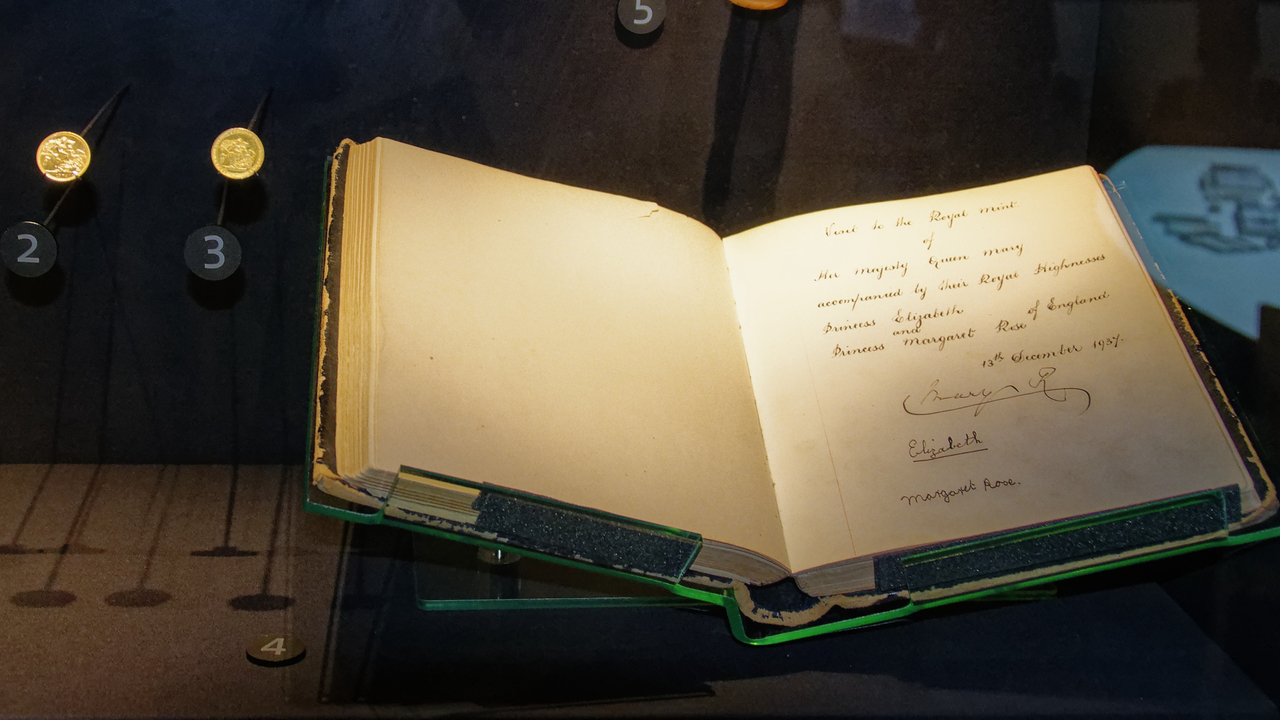 5
2
3
4
Visit to the Royal Mint
of
Her Majesty Queen Mary
accompanied by their Royal Highnesses
Princess Elizabeth
and
Princess Margaret Rose of England
13th December 1937.
Mary R
Elizabeth
Margaret Rose.